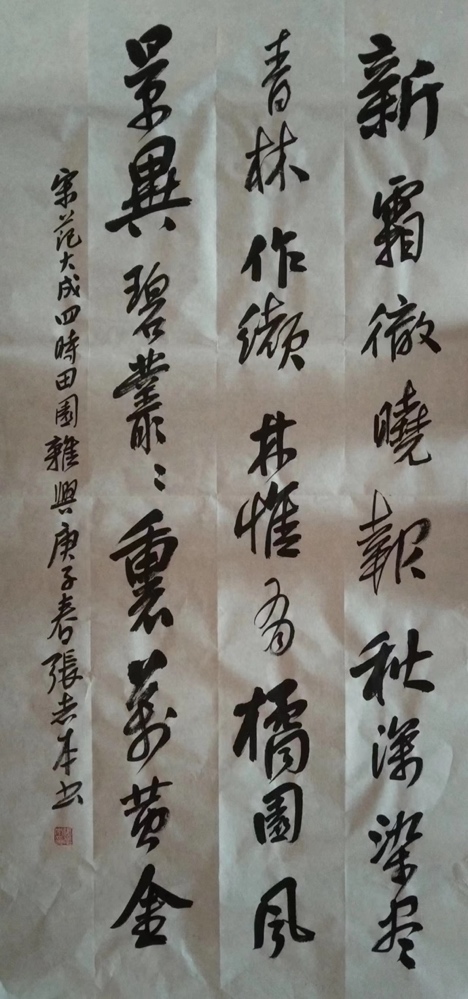 新霜徹曉報秋深染尽
青林作纈林惟有橘園風
景異碧叢〻裏萬黄金
宋范大成四時田園雜興庚子春張志本书